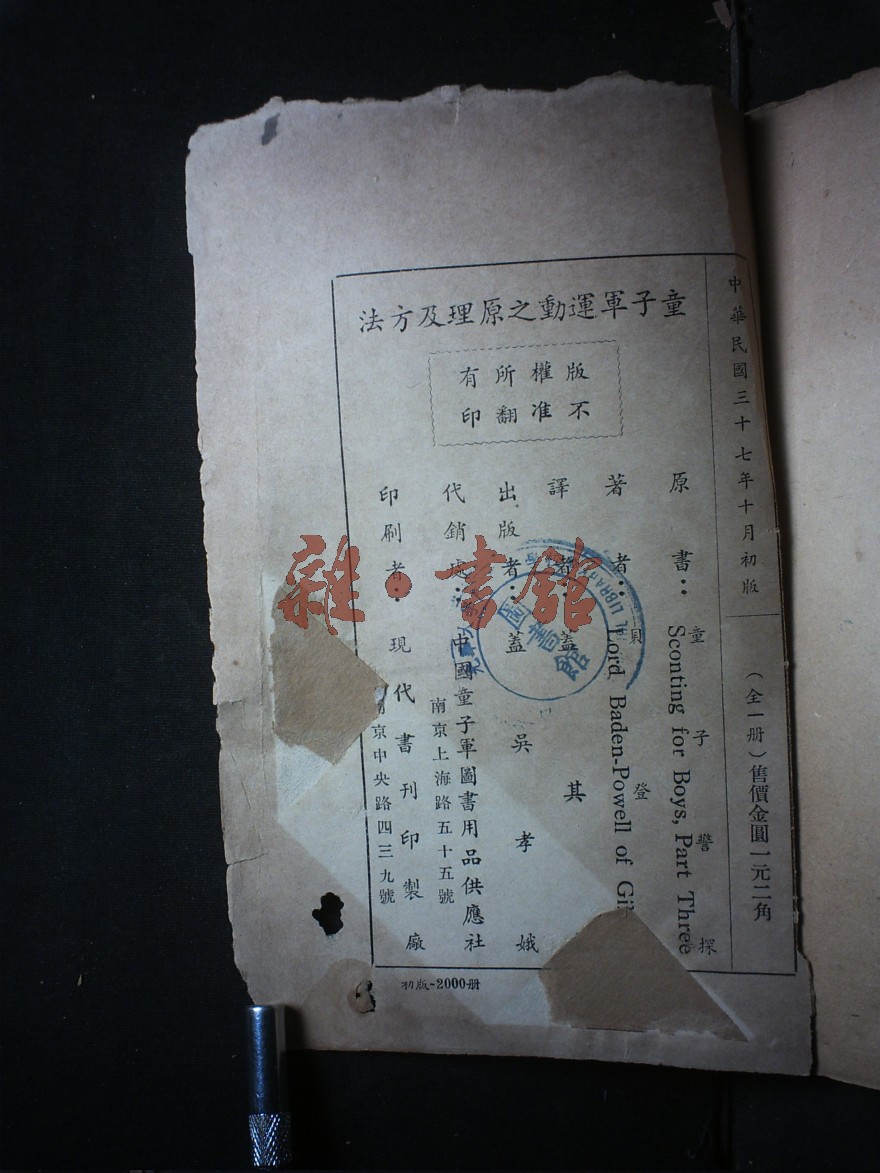 中華民國三十七年十月初版
（全一册）售價金圓一元二角
童子軍運動之原理及方法
版權所有
不准翻印
原書：童子警探
Sconting for Boys, Part Three
著者：貝登
Lord Baden-Powell of Gil
譯者：蓋其
出版者：蓋吳孝娥
代銷處：中國童子軍圖書用品供應社
南京上海路五十五號
印刷者：現代書刊印製廠
南京中央路四三九號
初版~2000册
雜·書館
圖書館
LIBRARY